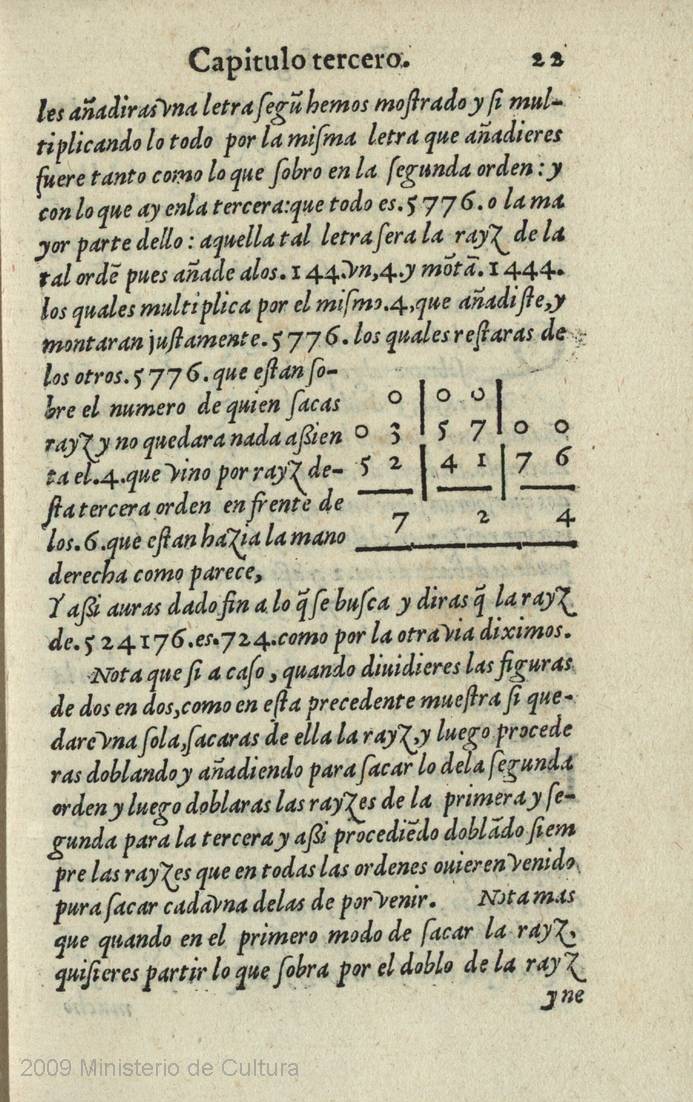 Capitulo tercero. 22
les añadiras vna letra segũ hemos mostrado y si mul-
tiplicando lo todo por la misma letra que añadieres
fuere tanto como lo que sobro en la segunda orden: y
con lo que ay enla tercera: que todo es.5776. o la ma
yor parte dello: aquella tal letra sera la rayz de la
tal ordẽ pues añade alos.144.vn,4.y mõtã.1444.
los quales multiplica por el mismo.4,que añadiste,y
montaran justamente.5776. los quales restaras de
los otros.5776.que estan so-
bre el numero de quien sacas
rayz y no quedara nada assien
ta el.4.que vino por rayz de-
sta tercera orden en frente de
los.6.que estan hazia la mano
derecha como parece,
0 | 0 0 |
0 3 | 5 7 | 0 0
5 2 | 4 1 | 7 6
7 2 4
Y assi auras dado fin a lo q̃ se busca y diras q̃ la rayz
de.524176.es.724.como por la otra via diximos.
Nota que si a caso, quando diuidieres las figuras
de dos en dos,como en esta precedente muestra si que-
dare vna sola,sacaras de ella la rayz,y luego procede
ras doblando y añadiendo para sacar lo dela segunda
orden y luego doblaras las rayzes de la primera y se-
gunda para la tercera y assi procediẽdo doblãdo siem
pre las rayzes que en todas las ordenes ouieren venido
pura sacar cada vna delas de por venir. Nota mas
que quando en el primero modo de sacar la rayz,
quisieres partir lo que sobra por el doblo de la rayz
yne
2009 Ministerio de Cultura